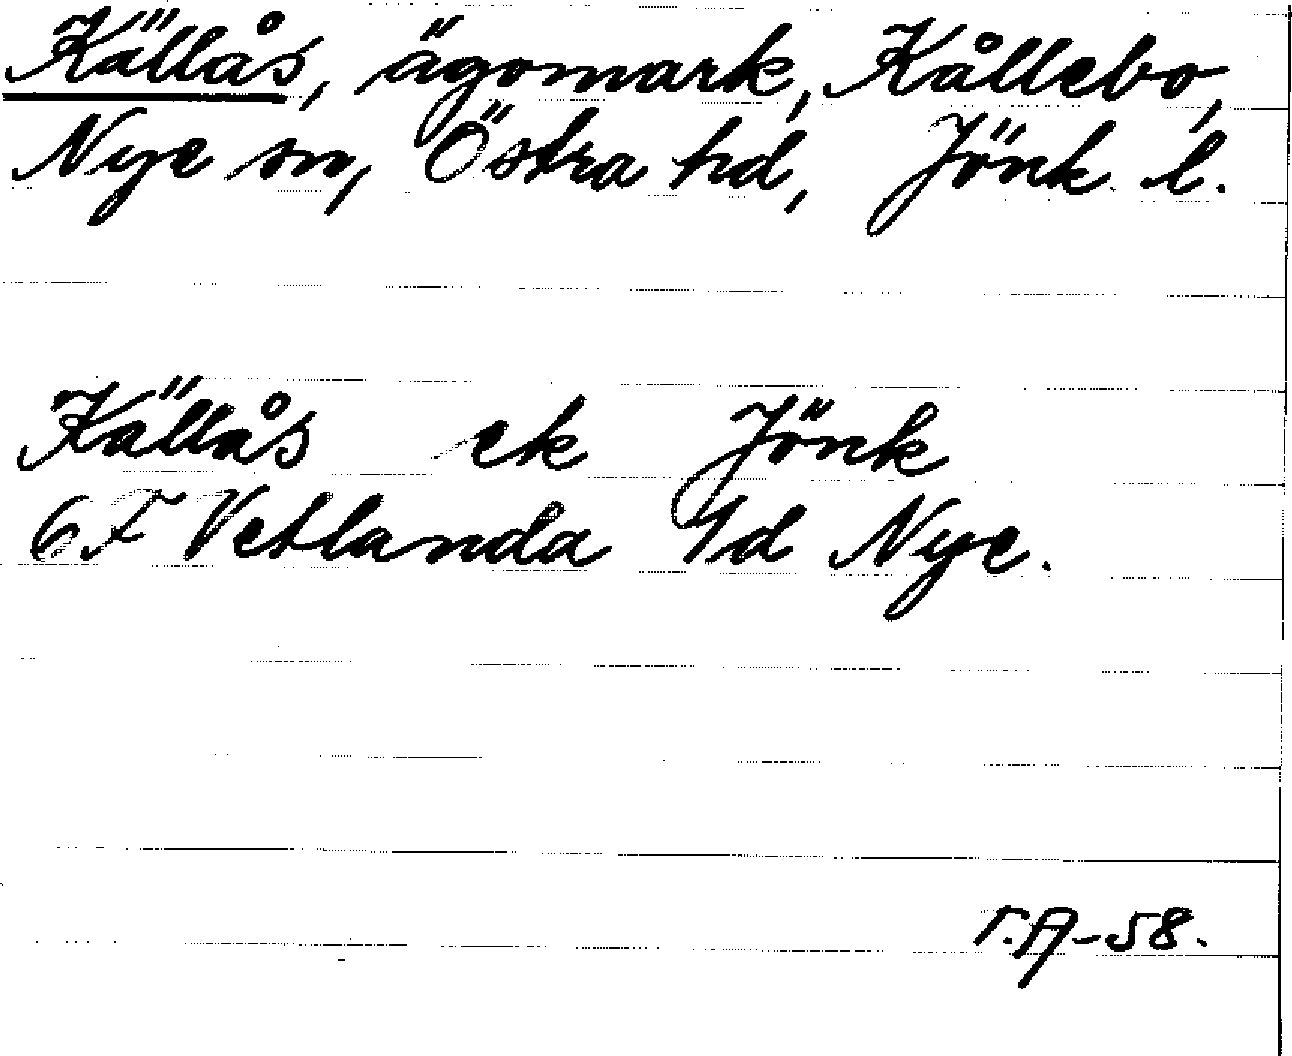 Källås, ägomark, Kållebo,
Nye sn, Östra hd, Jönk. l.
Källås ek Jönk
6F Vetlanda 4d Nye.
T.A-58.